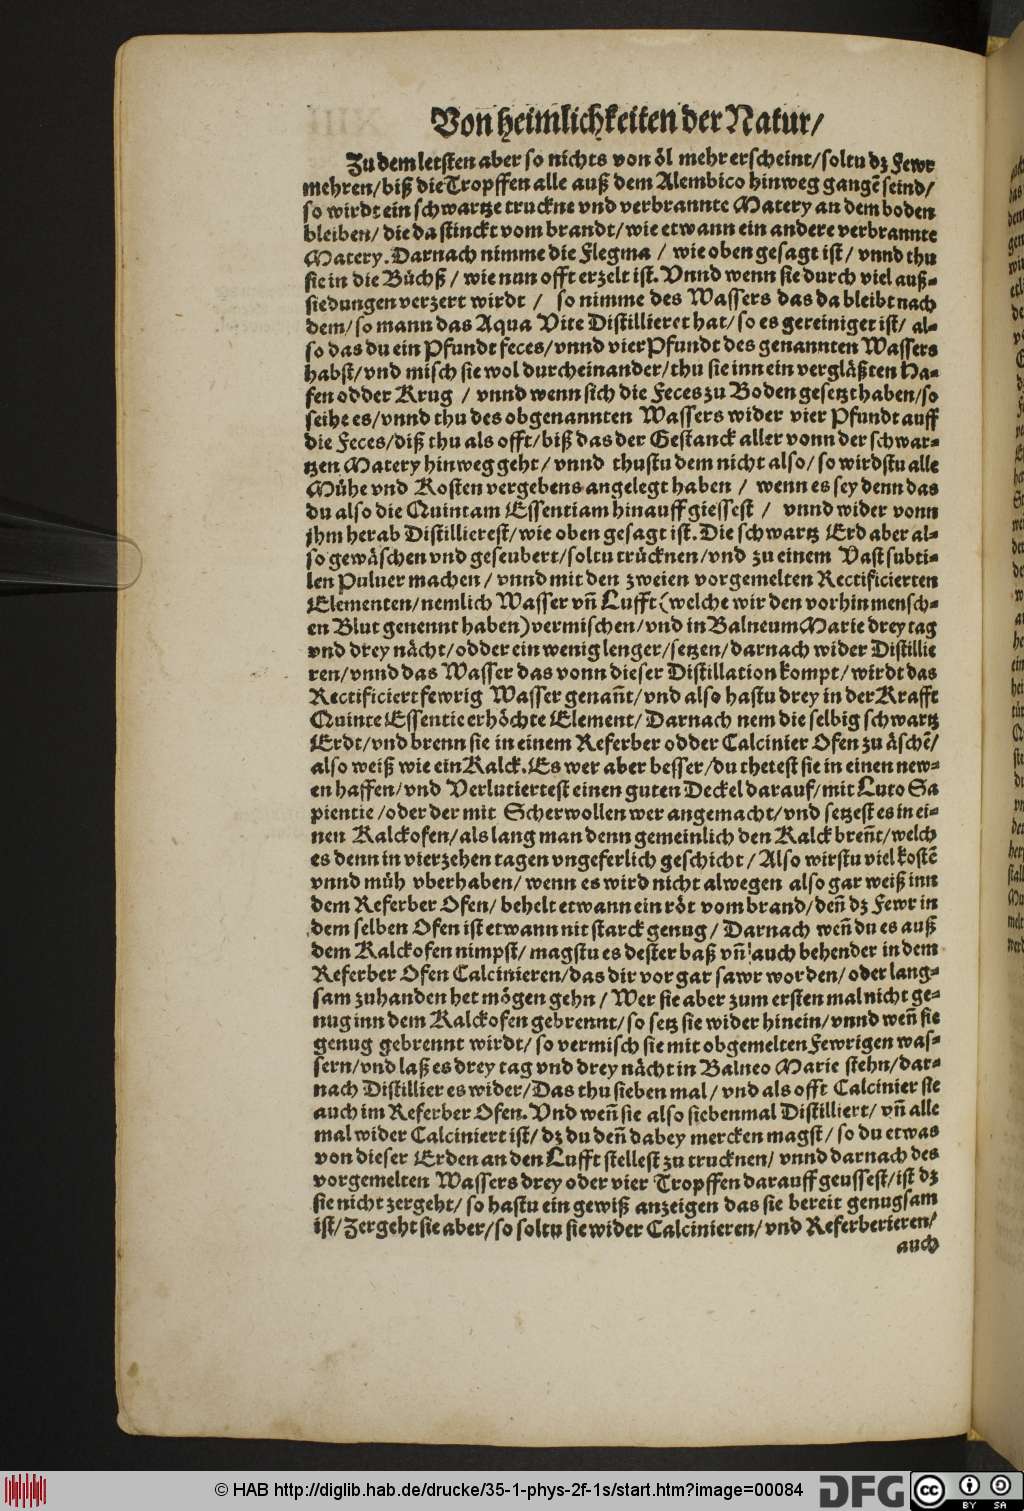 Von heimlichkeiten der Natur/
Zu dem letsten aber so nichts von öl mehr erscheint/ soltu dz Fewr
mehren/ biß die Tropffen alle auß dem Alembico hinweg gangē seind/
so wirdt ein schwartze truckne vnd verbrannte Matery an dem boden
bleiben/ die da stinckt vom brandt/ wie etwann ein andere verbrannte
Matery. Darnach nimme die Flegma / wie oben gesagt ist/ vnnd thu
sie in die Büchß / wie nun offt erzelt ist. Vnnd wenn sie durch viel auß-
siedungen verzert wirdt / so nimme des Wassers das da bleibt nach
dem/ so mann das Aqua Vite Distillieret hat/ so es gereiniget ist/ al-
so das du ein Pfundt feces/ vnnd vier Pfundt des genannten Wassers
habst/ vnd misch sie wol durcheinander/ thu sie inn ein vergläßten Ha-
fen odder Krug / vnnd wenn sich die Feces zu Boden gesetzt haben/ so
seihe es/ vnnd thu des obgenannten Wassers wider vier Pfundt auff
die Feces/ diß thu als offt/ biß das der Gestanck aller vonn der schwar-
tzen Matery hinweg geht/ vnnd thustu dem nicht also/ so wirdstu alle
Mühe vnd Kosten vergebens angelegt haben / wenn es sey denn das
du also die Quintam Essentiam hinauff giessest / vnnd wider vonn
jhm herab Distillierest/ wie oben gesagt ist. Die schwartz Erd aber al-
so gewäschen vnd geseubert/ soltu trücknen/ vnd zu einem Vast subti-
len Puluer machen/ vnnd mit den zweien vorgemelten Rectificierten
Elementen/ nemlich Wasser vñ Lufft (welche wir den vorhin mensch-
en Blut genennt haben) vermischen/ vnd in Balneum Marie drey tag
vnd drey nächt/ odder ein wenig lenger/ setzen/ darnach wider Distillie
ren/ vnnd das Wasser das vonn dieser Distillation kompt/ wirdt das
Rectificiert fewrig Wasser genañt/ vnd also hastu drey in der Krafft
Quinte Essentie erhöchte Element/ Darnach nem die selbig schwartz
Erdt/ vnd brenn sie in einem Referber odder Calcinier Ofen zu äschē/
also weiß wie ein Kalck. Es wer aber besser/ du thetest sie in einen new-
en haffen/ vnd Verlutiertest einen guten Deckel darauf/ mit Luto Sa
pientie / oder der mit Scherwollen wer angemacht/ vnd setzest es in ei-
nen Kalckofen/ als lang man denn gemeinlich den Kalck breñt/ welch
es denn in vierzehen tagen vngeferlich geschicht/ Also wirstu viel kostē
vnnd müh vberhaben/ wenn es wird nicht alwegen also gar weiß inn
dem Referber Ofen/ behelt etwann ein röt vom brand/ deñ dz Fewr in
dem selben Ofen ist etwann nit starck genug/ Darnach weñ du es auß
dem Kalckofen nimpst/ magstu es dester baß vñ auch behender in dem
Referber Ofen Calcinieren/ das dir vor gar sawr worden/ oder lang-
sam zuhanden het mögen gehn/ Wer sie aber zum ersten mal nicht ge-
nug inn dem Kalckofen gebrennt/ so setz sie wider hinein/ vnnd weñ sie
genug gebrennt wirdt/ so vermisch sie mit obgemelten Fewrigen was-
sern/ vnd laß es drey tag vnd drey nächt in Balneo Marie stehn/ dar-
nach Distillier es wider/ Das thu sieben mal/ vnd als offt Calcinier sie
auch im Referber Ofen. Vnd weñ sie also siebenmal Distilliert/ vñ alle
mal wider Calciniert ist/ dz du deñ dabey mercken magst/ so du etwas
von dieser Erden an den Lufft stellest zu trucknen/ vnnd darnach des
vorgemelten Wassers drey oder vier Tropffen darauff geussest/ ist dz
sie nicht zergeht/ so hastu ein gewiß anzeigen das sie bereit genugsam
ist/ Zergeht sie aber/ so soltu sie wider Calcinieren/ vnd Referberieren/
auch
© HAB http://diglib.hab.de/drucke/35-1-phys-2f-1s/start.htm?image=00084
DFG
cc
BY SA